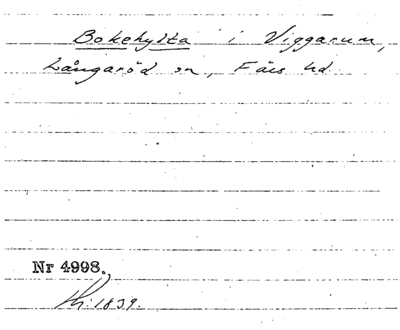 Bokehylta i Viggarum,
Långaröd sn, Färs hd.
Nr 4998.
1839.